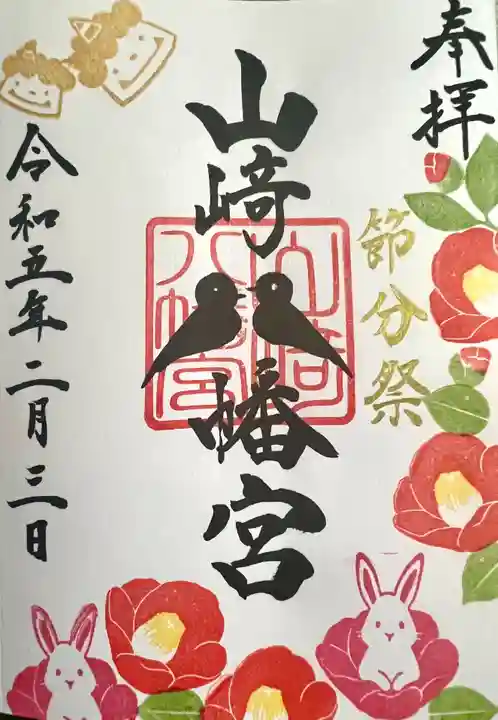 奉拝
節分祭
山崎八幡宮
山崎
八幡宮
令和五年二月三日